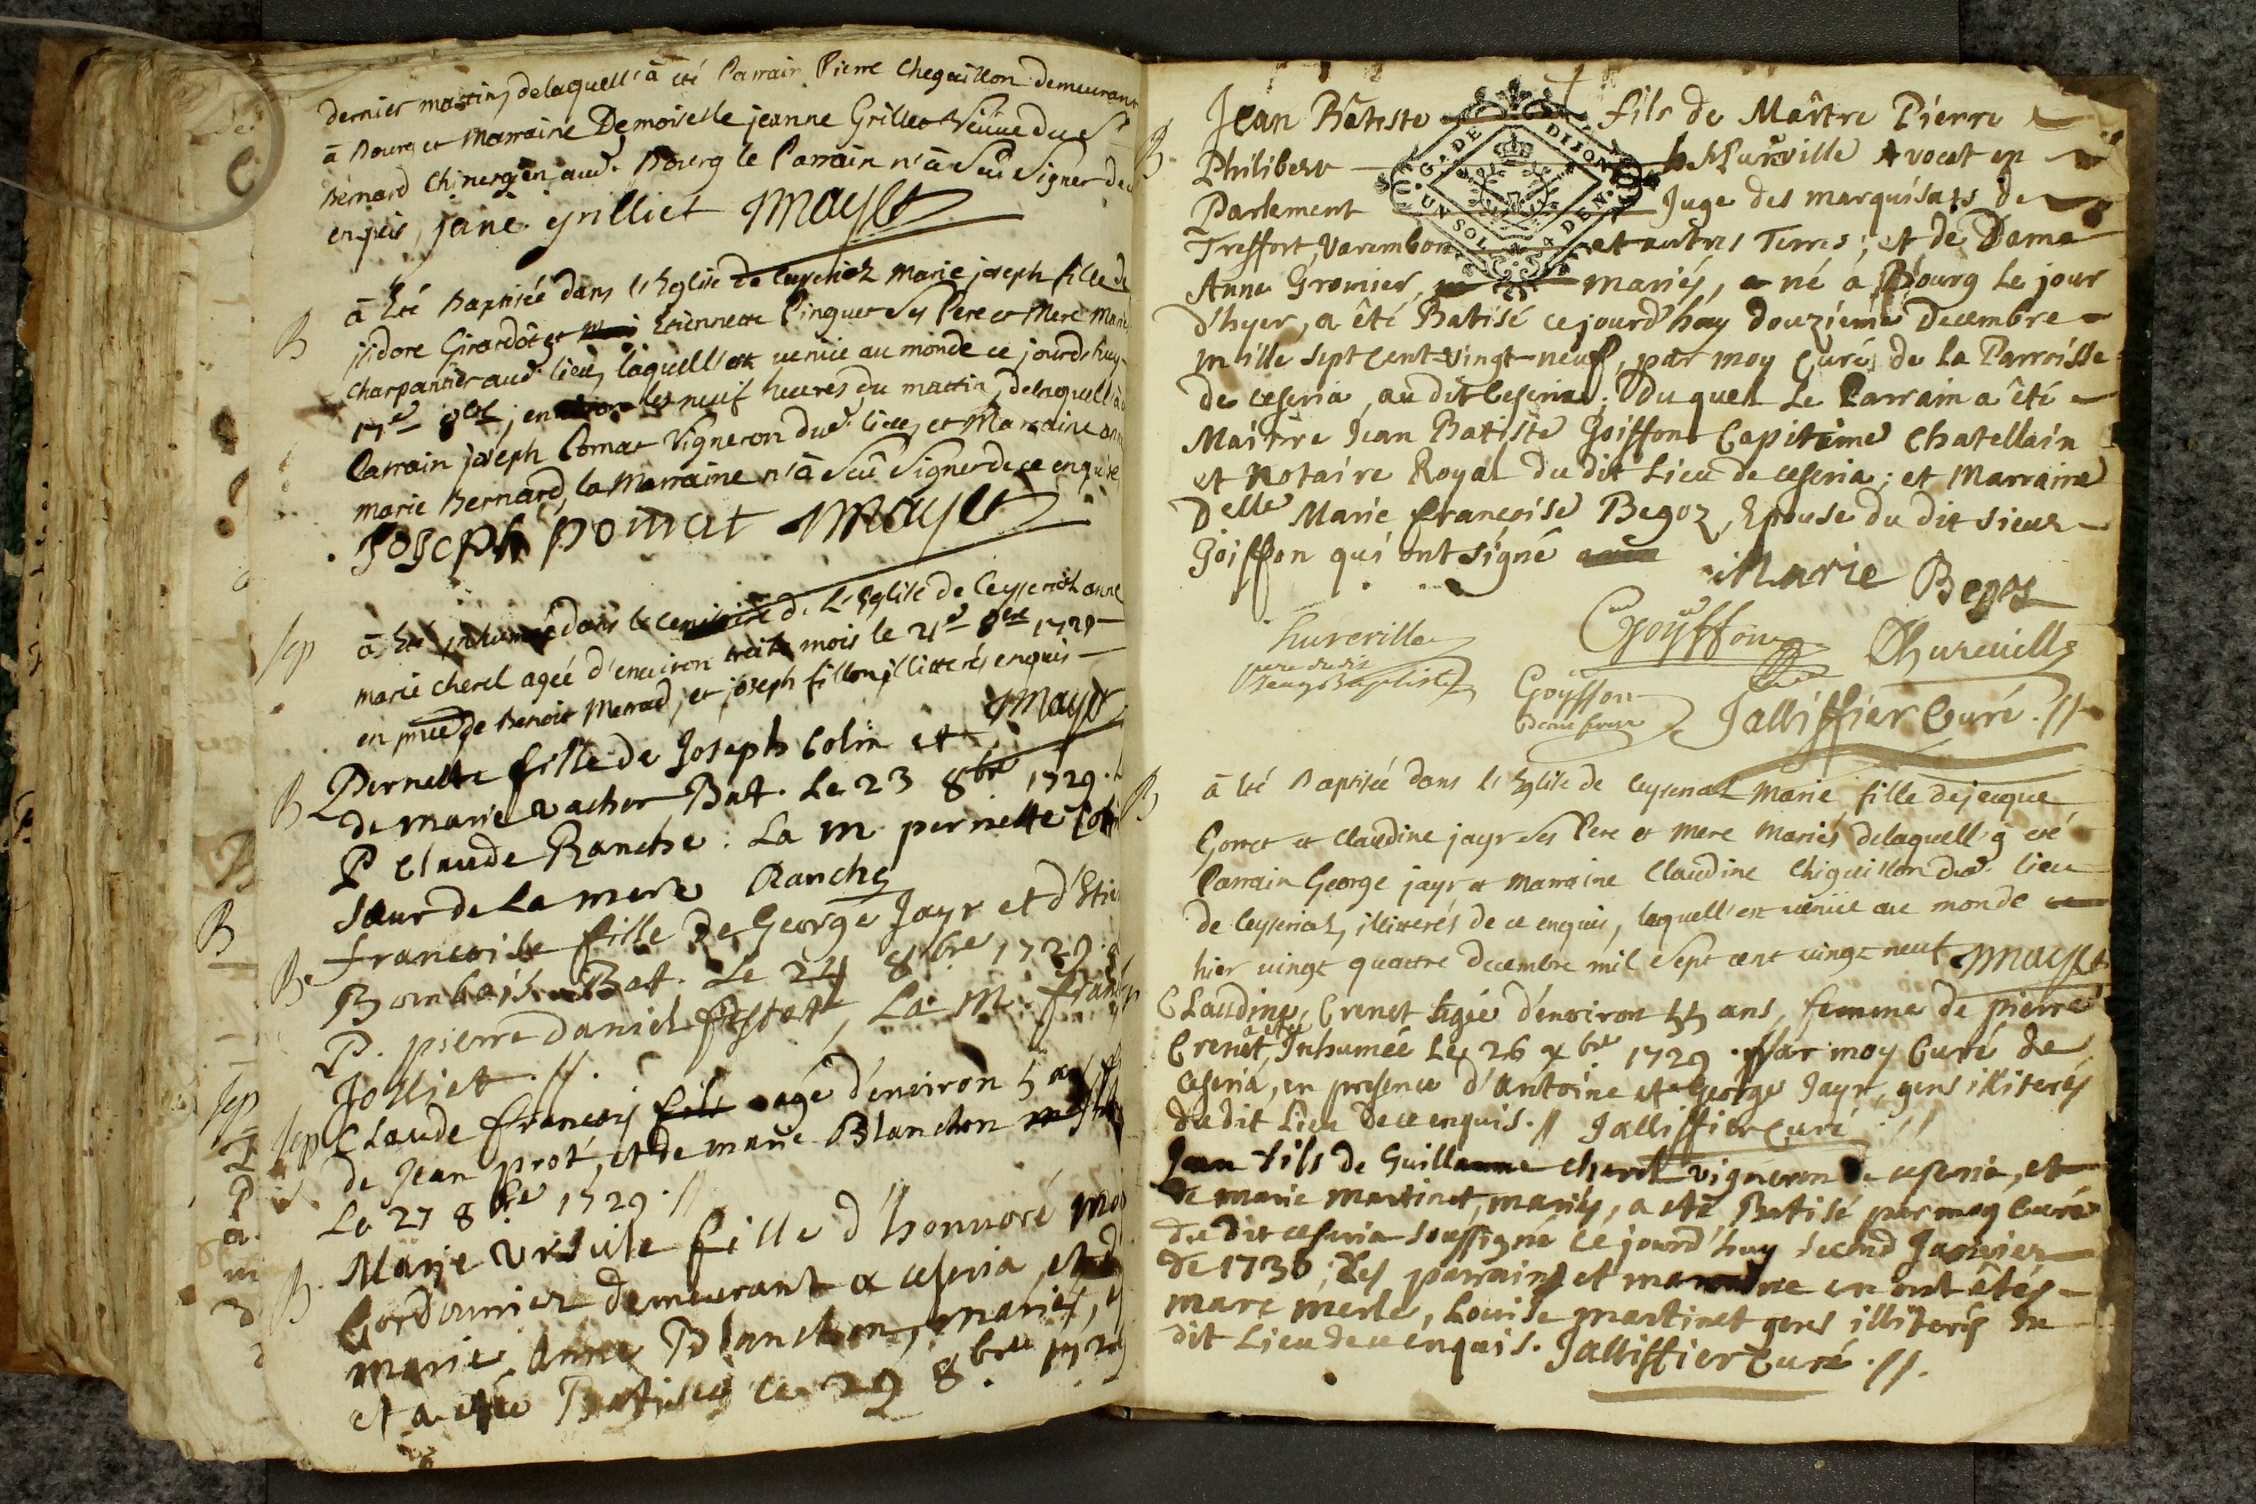 dernier martin, delaquell'à été Parrain Pierre Cheguillon demeurant
à Bourg et Marraine Demoiselle jeanne Grillet Veuue du Sr
Bernard Chirurgien aud. Bourg le Parrain n'à Sçû Signer de
enquis, jane grilliet Mayet
B
à été Baptisée dans l'Eglise de Ceyseriaz Marie joseph fille de
jsidore Girardot et Etiennette Pinguet Ses Pere et Mere Mariés
Charpantier aud. lieu, laquell'est venüe au monde ce jourdhuy
8bre, les neuf heures du mattin, delaquell'à
Parrain joseph Pomat Vigneron dud. lieu, et Marraine
marie Bernard, la Marraine n'à Sçû Signer de ce enquise
Joseph pomat Mayet
Sep
à été inhumée dans le cemitiere de l'Eglise de Ceyseriaz anne
marie cherel agée d'enuiron mois le 21e 8bre 1729
en pnce de Benoit Merrad, et joseph fillon, illitterés enquis
Mayet
B
Pernette fille de Joseph Colin et
de marie vacher Bat. Le 23 8bre 1729.
P Claude Ranche. La M pernette
Sœur de La mere Ranche
B
francoise fille De George Jayr et d'
Bat. Le 24 8bre 1729.
P. pierre Daniel, La M. fran
Jolliet. //.
Sep
Claude francois fils agé d'environ 5 ans
de Jean prot, et de marie Blanchon
Le 27 8bre 1729. //
B
Marie Ursule fille d'honnoré
Cordonnier demeurant a ceseria, et de
marie Anne Blanchon, mariés,
et a etée Batisée le 29 8bre 172
B
Jean Batiste fils de Maître Pierre
Philibert Avocat en
Parlement Juge des marquisats de
Treffort, Varembon et autres Terres; et de Dame
Anne Gromier, mariés, né à Bourg le jour
d'hyer, a été Batisé ce jourd'huy douziéme Decembre
mille sept cent vingt-neuf, par moy Curé de la Parroisse
de ceseria, au dit Ceseria. Du quel le Parrain a été
Maître Jean Batiste Goiffon Capitaine Chatellain
et Notaire Royal du dit Lieu de ceseria; et Marraine
Delle Marie françoise Begoz, Epouse du dit sieur
Goiffon qui ont signé
G. DE DIJON
UN SOL 4 DEN.
Marie Begoz
Thureville
pere dudit
Jean Baptiste
Goyffon
Thureuille
Goyffon
Jalliffier Curé. //
B
à été Baptisée dans l'Eglise de Ceyseriaz Marie fille de jacque
Gorret et Claudine jayr Ses Pere et Mere Mariés delaquell'à été
Parrain George jayr et Marraine Claudine Chiguillon dud. lieu
de Ceyseriaz, illitterés de ce enquis, laquell'est venüe au monde
hier vingt quattre decembre mil Sept cent vingt neuf Mayet
Claudine Crenet Agée d'environ 55 ans, femme de pierre
Crenet, a été Inhumée Le 26 xbre 1729. par moy Curé de
Ceseria, en presence d'Antoine et George Jayr, gens illiterés
du dit Lieu de ce enquis. // Jalliffier Curé. //
Jean fils de Guillaume cherel vigneron de ceseria, et
de marie martinet, mariés, a eté Batisé par moy Curé
du dit ceseria soussigné ce jourd'huy second Janvier
de 1730; Les parrain et marraine en ont étés
marc merle, Louise martinet gens illiterés du
dit Lieu de ce enquis. Jalliffier Curé. //.